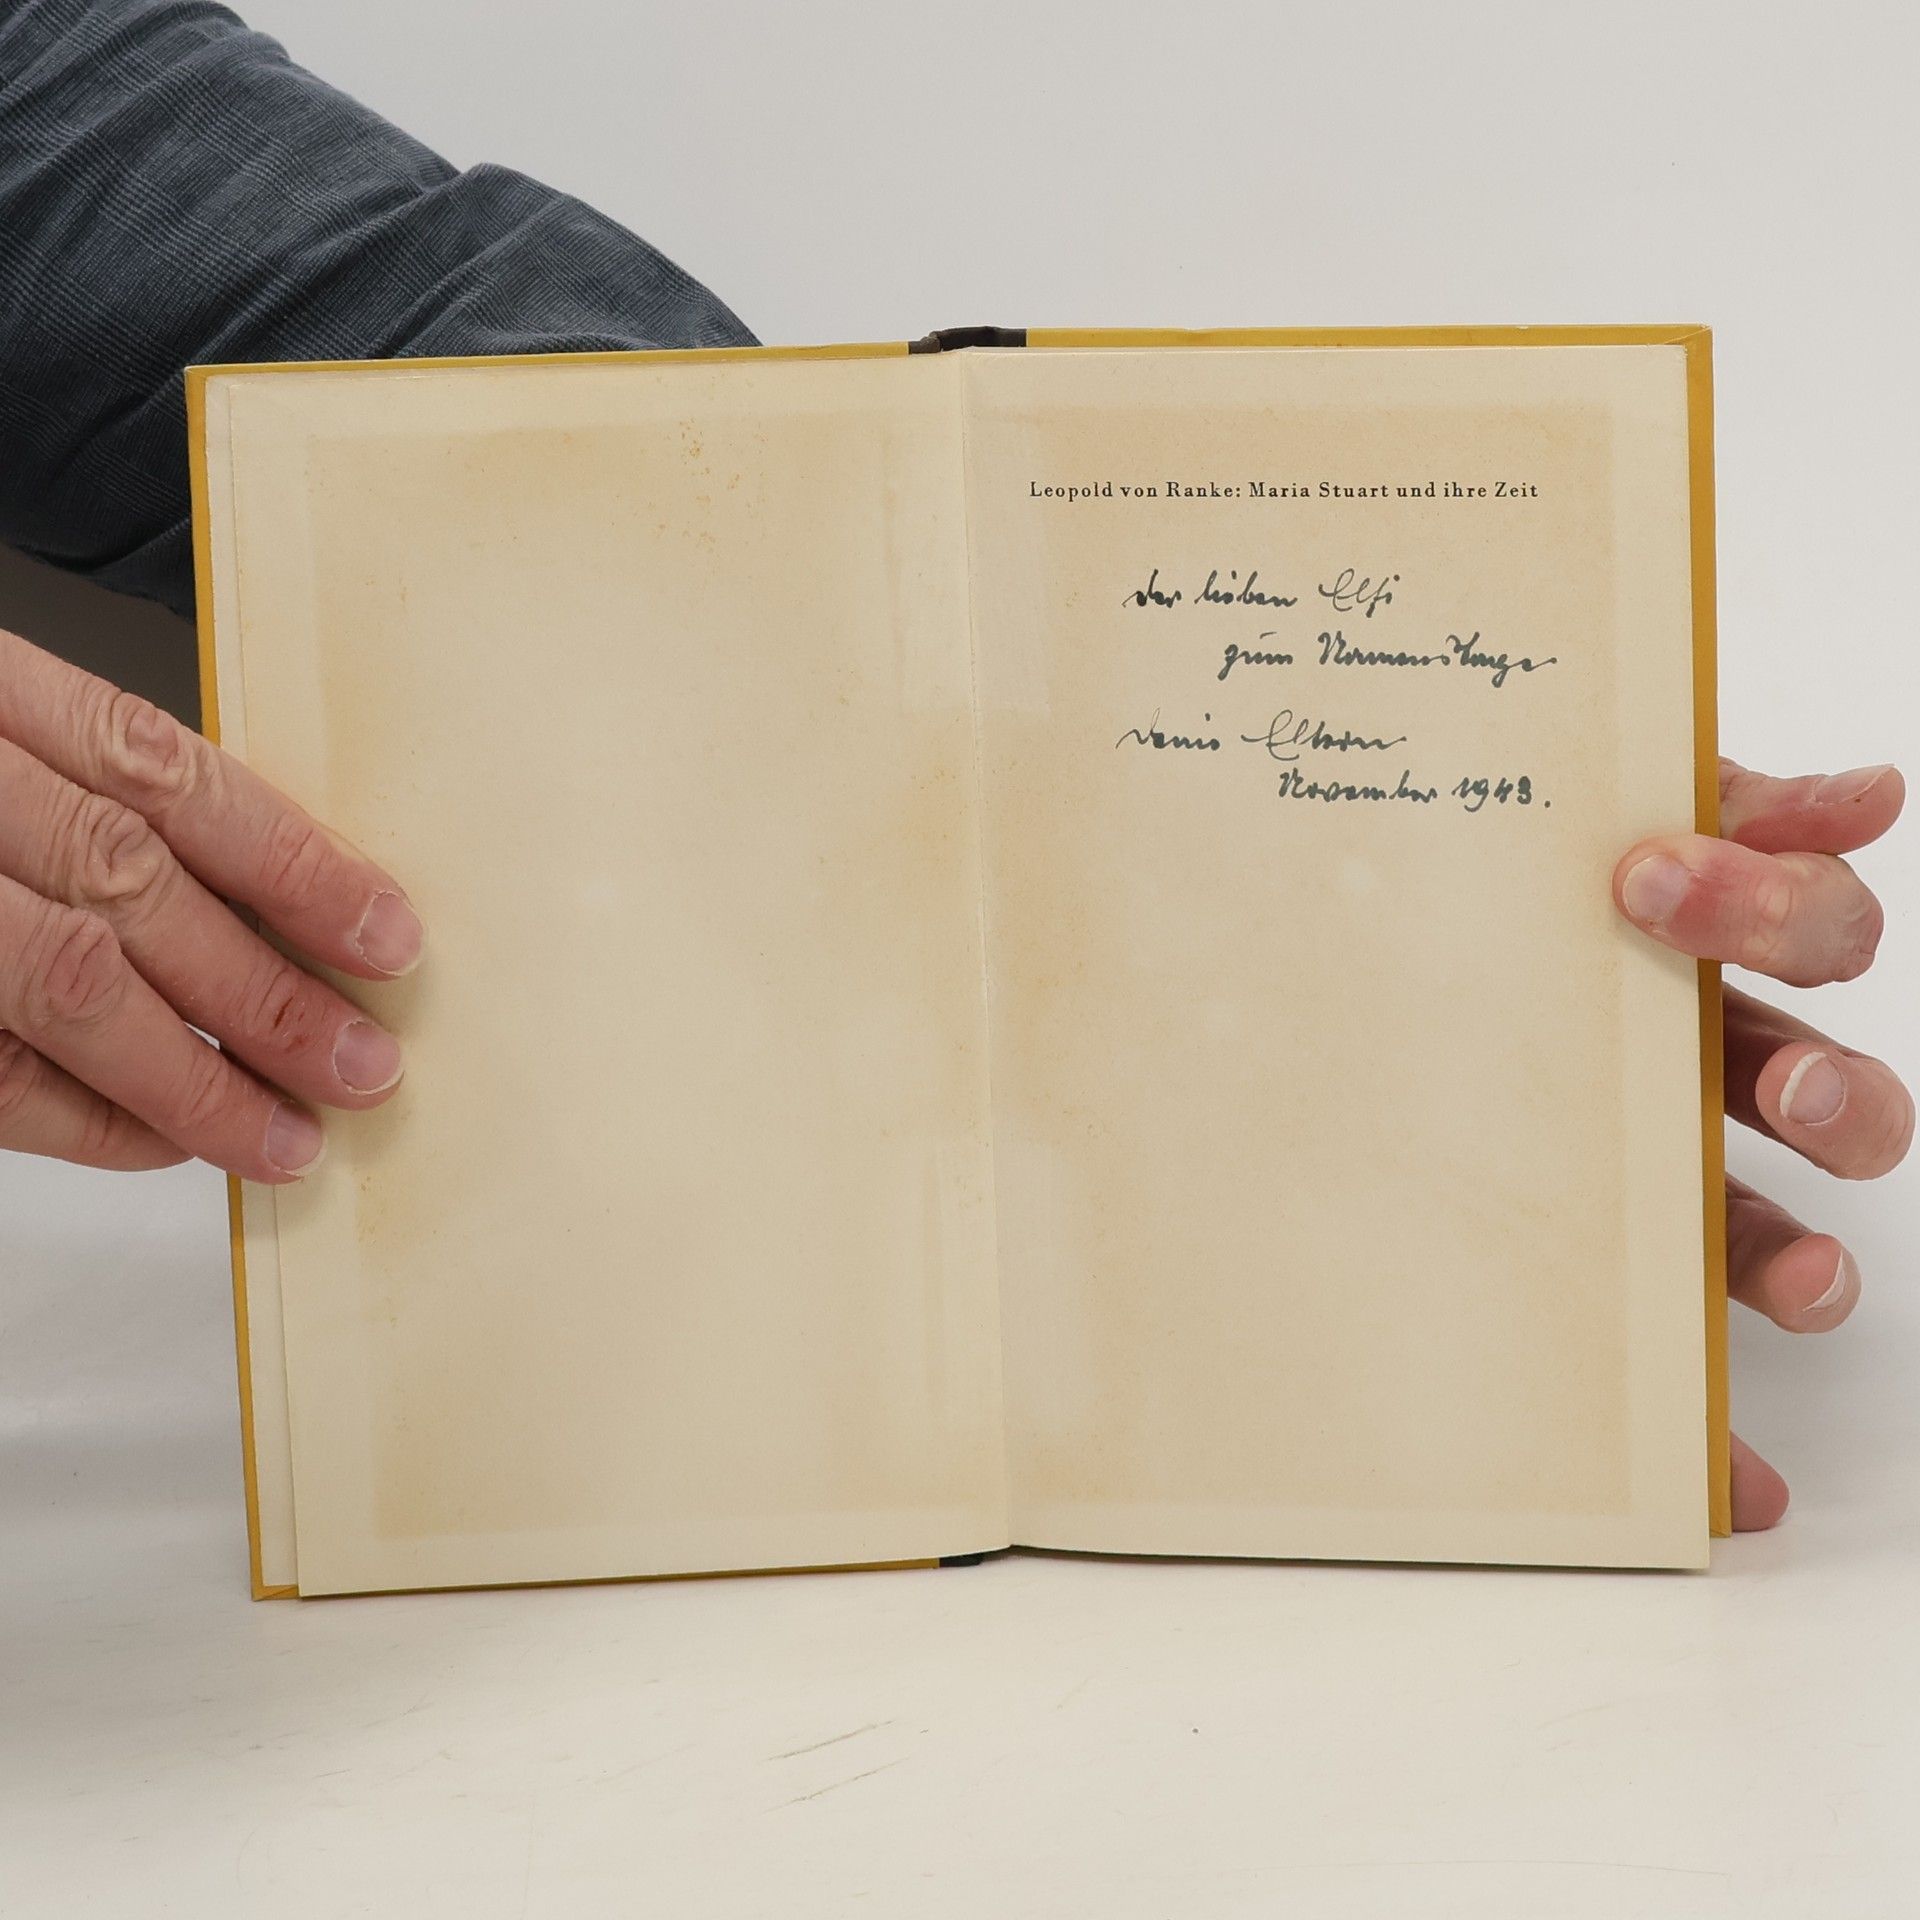 Leopold von Ranke: Maria Stuart und ihre Zeit
Der lieben Elfi
zum Namenstage
Deine Eltern
November 1943.